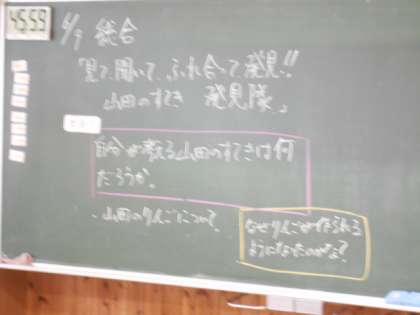 45:59
6/9 総合
「見て、聞いて、ふれ合って、発見!!
山田のすてき 発見隊」
自分が考える山田のすてきは何
だろうか。
・山田のりんごについて
なぜりんごが作られる
ようになったのかな?